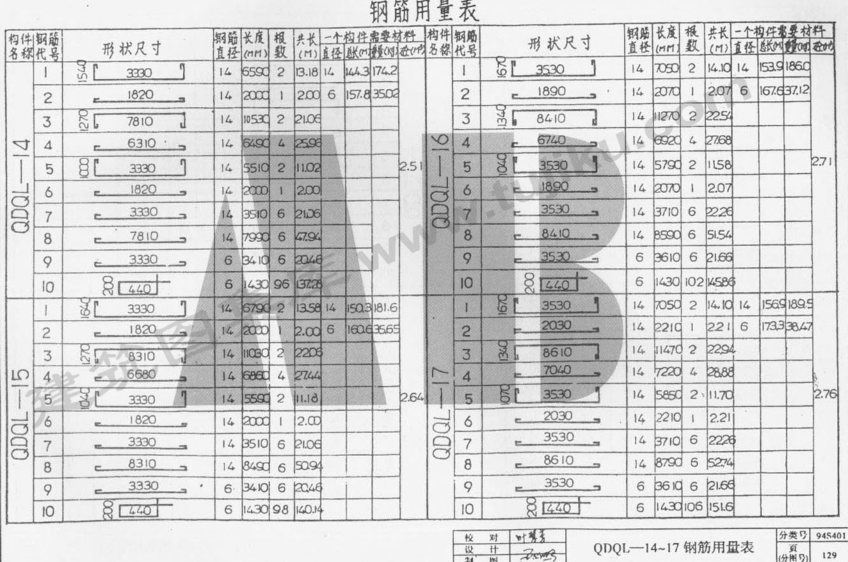 钢筋用量表
构件名称 钢筋代号 形状尺寸 钢筋直径 长度(MM) 根数 共长(M) 一个构件需要材料 直径 总长(M) 重量(Kg) 砼(m³)
QDQL—14
1 1540 3330 14 6590 2 13.18 14 144.3 174.2
2 1820 14 2000 1 2.00 6 157.8 35.02
3 1270 7810 14 10530 2 21.06
4 6310 14 6490 4 25.96
5 1000 3330 14 5510 2 11.02 2.51
6 1820 14 2000 1 2.00
7 3330 14 3510 6 21.06
8 7810 14 7990 6 47.94
9 3330 6 3410 6 20.46
10 200 440 6 1430 96 137.28
QDQL—15
1 1640 3330 14 6790 2 13.58 14 150.3 181.6
2 1820 14 2000 1 2.00 6 160.6 35.65
3 1270 8310 14 11030 2 22.06
4 6680 14 6860 4 27.44
5 1040 3330 14 5590 2 11.18 2.64
6 1820 14 2000 1 2.00
7 3330 14 3510 6 21.06
8 8310 14 8490 6 50.94
9 3330 6 3410 6 20.46
10 200 440 6 1430 98 140.14
构件名称 钢筋代号 形状尺寸 钢筋直径 长度(MM) 根数 共长(M) 一个构件需要材料 直径 总长(M) 重量(Kg) 砼(m³)
QDQL—16
1 1670 3530 14 7050 2 14.10 14 153.9 186.0
2 1890 14 2070 1 2.07 6 167.6 37.12
3 1340 8410 14 11270 2 22.54
4 6740 14 6920 4 27.68
5 1040 3530 14 5790 2 11.58 2.71
6 1890 14 2070 1 2.07
7 3530 14 3710 6 22.26
8 8410 14 8590 6 51.54
9 3530 6 3610 6 21.66
10 200 440 6 1430 102 145.86
QDQL—17
1 1670 3530 14 7050 2 14.10 14 156.9 189.5
2 2030 14 2210 1 2.21 6 173.3 38.47
3 1340 8610 14 11470 2 22.94
4 7040 14 7220 4 28.88
5 1070 3530 14 5850 2 11.70 2.76
6 2030 14 2210 1 2.21
7 3530 14 3710 6 22.26
8 8610 14 8790 6 52.74
9 3530 6 3610 6 21.66
10 200 440 6 1430 106 151.6
校对
设计
制图
QDQL—14~17 钢筋用量表
分类号 94S401
页(分图号) 129
建筑图库 www.tujiku.com